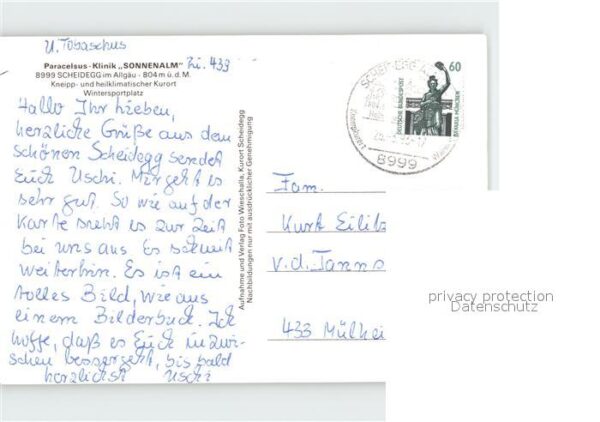 U. Tobaschus
Paracelsus-Klinik „SONNENALM" Zi. 433
8999 SCHEIDEGG im Allgäu - 804 m ü. d. M.
Kneipp- und heilklimatischer Kurort
Wintersportplatz
Hallo Ihr Lieben,
herzliche Grüße aus dem
schönen Scheidegg sendet
Euch Uschi. Mir geht es
sehr gut. So wie auf der
Karte sieht es zur Zeit
bei uns aus. Es schneit
weiterhin. Es ist ein
tolles Bild, wie aus
einem Bilderbuch. Ich
hoffe, daß es Euch inzwi-
schen besser geht, bis bald
herzlichst Uschi
Aufnahme und Verlag Foto Wieschalla, Kurort Scheidegg
Nachbildungen nur mit ausdrücklicher Genehmigung
60
DEUTSCHE BUNDESPOST
BAVARIA MÜNCHEN
8999
Fam.
Kurt Eilitz
v.d. Tanns
433 Mülhei
privacy protection
Datenschutz